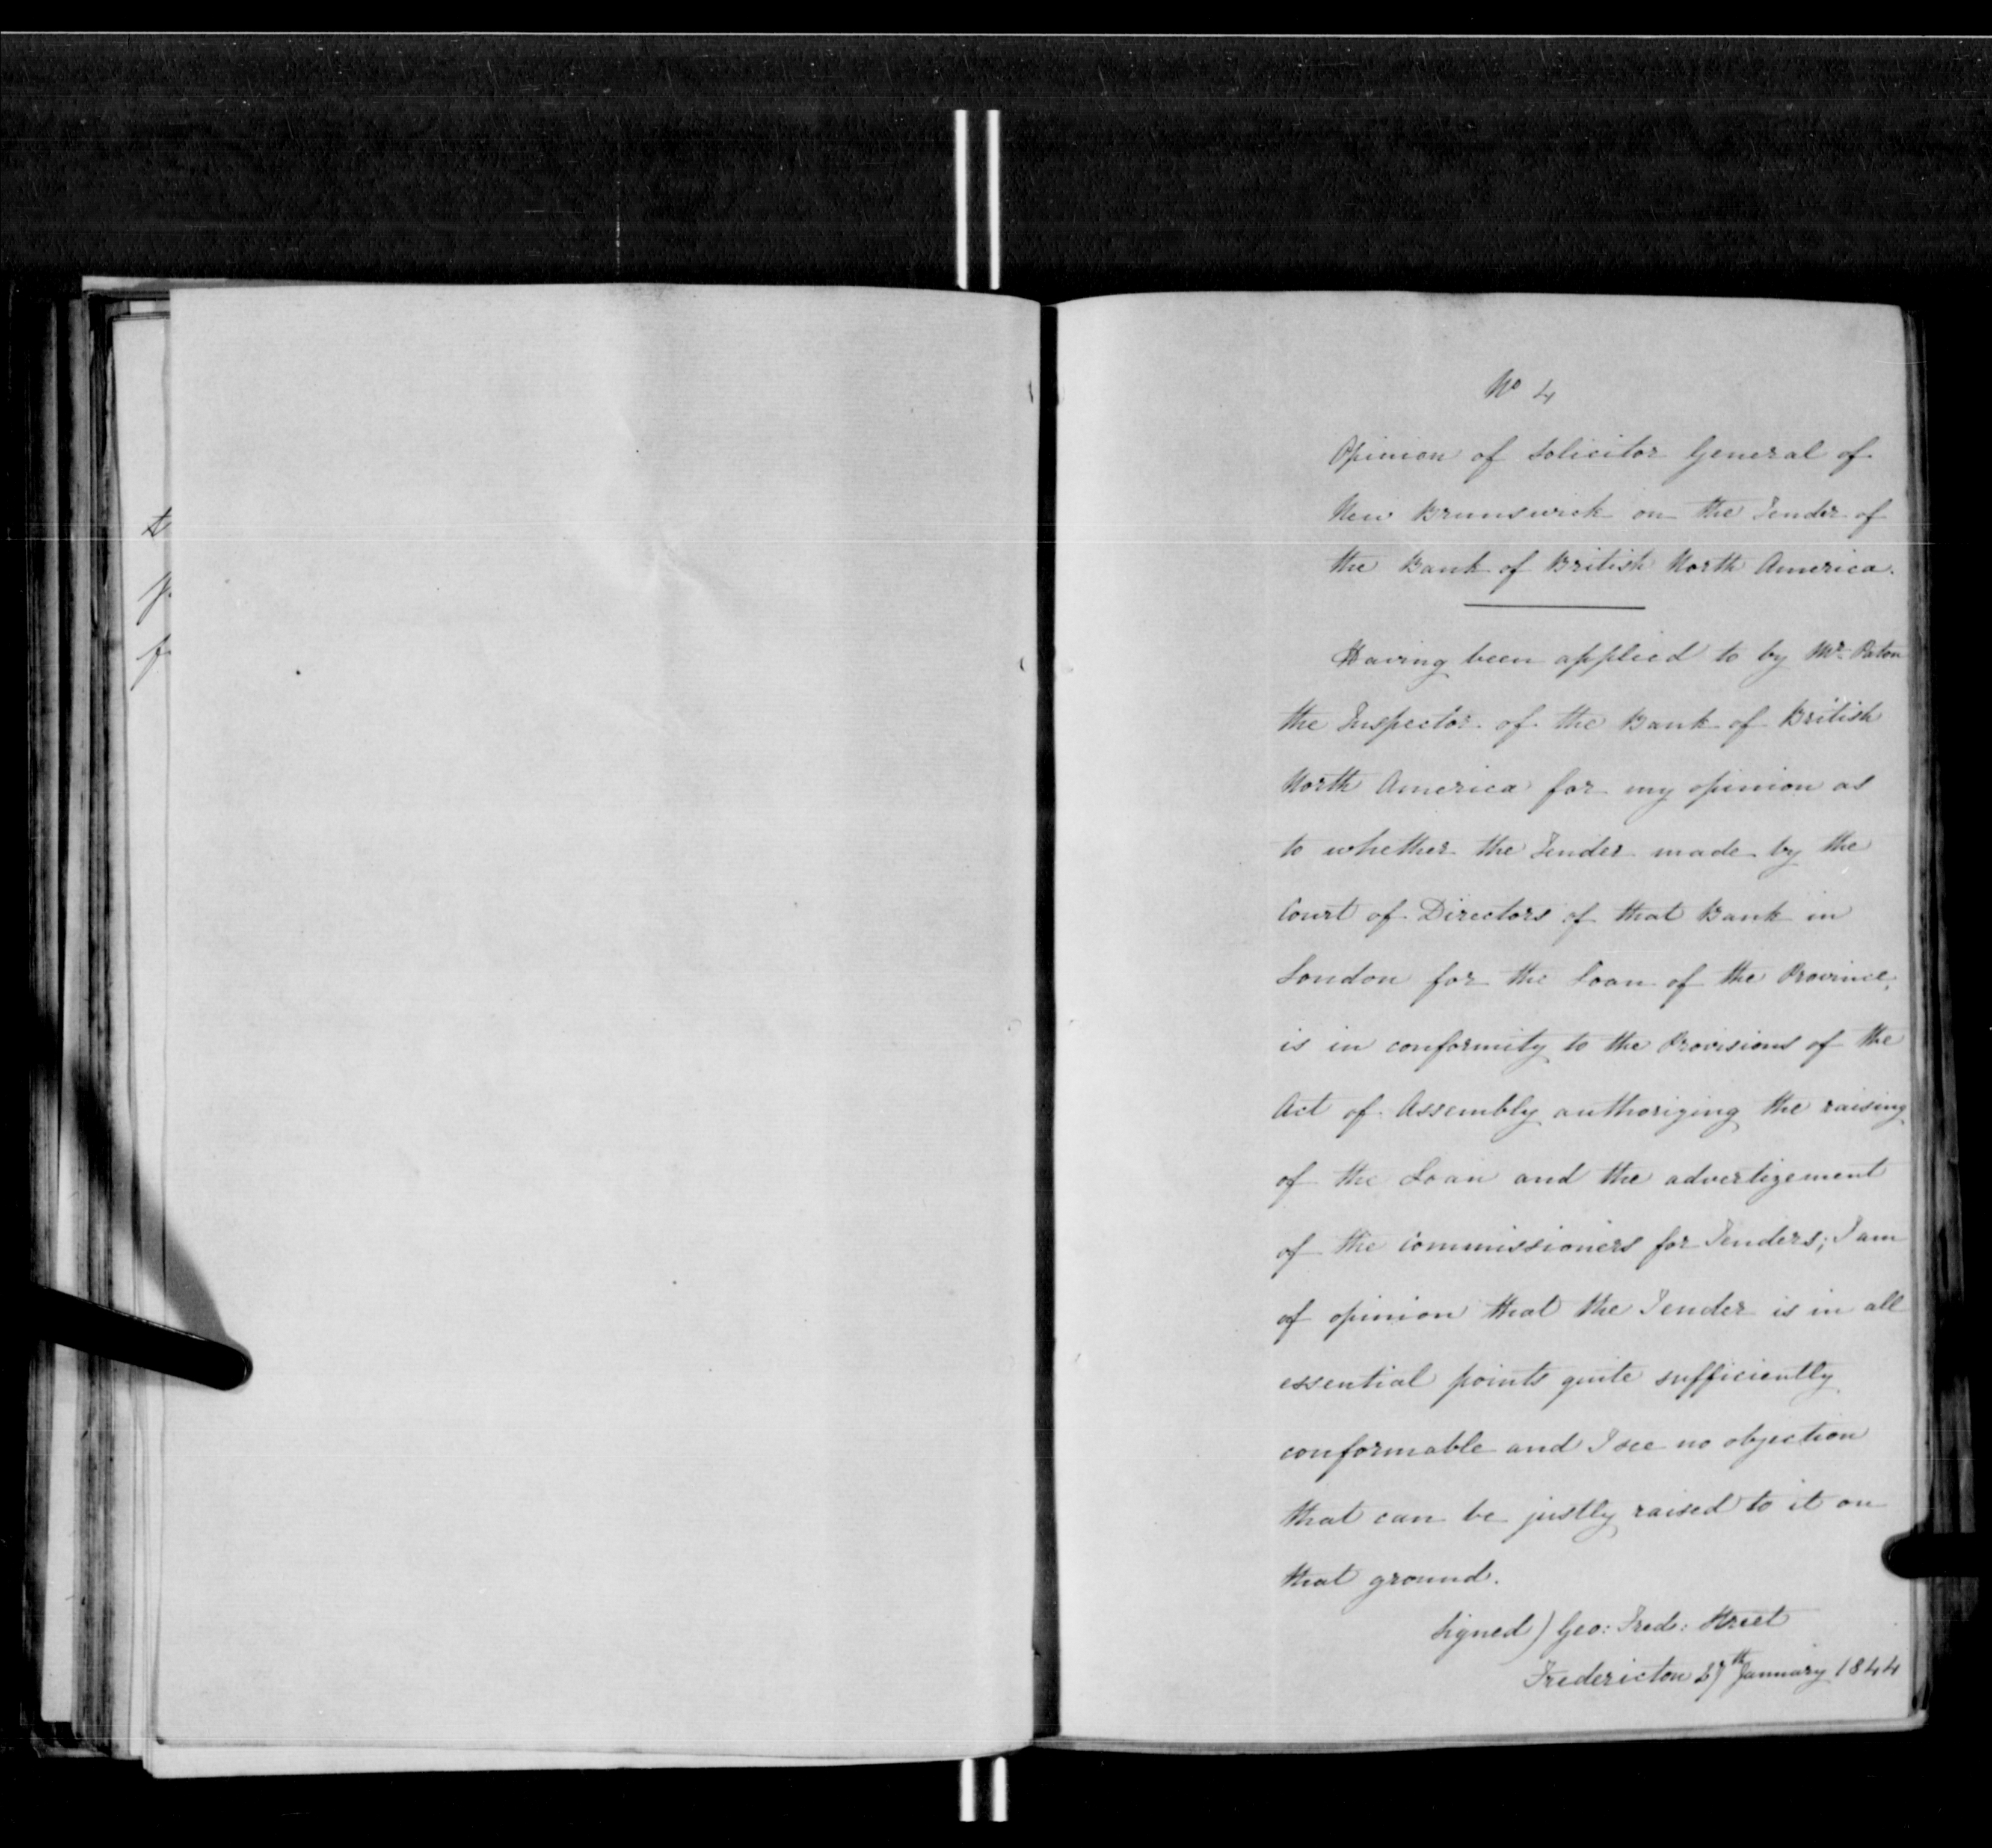 No 4
Opinion of Solicitor General of
New Brunswick on the Tender of
the Bank of British North America.
Having been applied to by Mr. Paton
the Inspector of the Bank of British
North America for my opinion as
to whether the Tender made by the
Court of Directors of that Bank in
London for the Loan of the Province,
is in conformity to the Provisions of the
Act of Assembly authorizing the raising
of the Loan and the advertizement
of the Commissioners for Tenders; I am
of opinion that the Tender is in all
essential points quite sufficiently
conformable and I see no objection
that can be justly raised to it on
that ground.
Signed) Geo: Fred: Street
Fredericton 27th January 1844